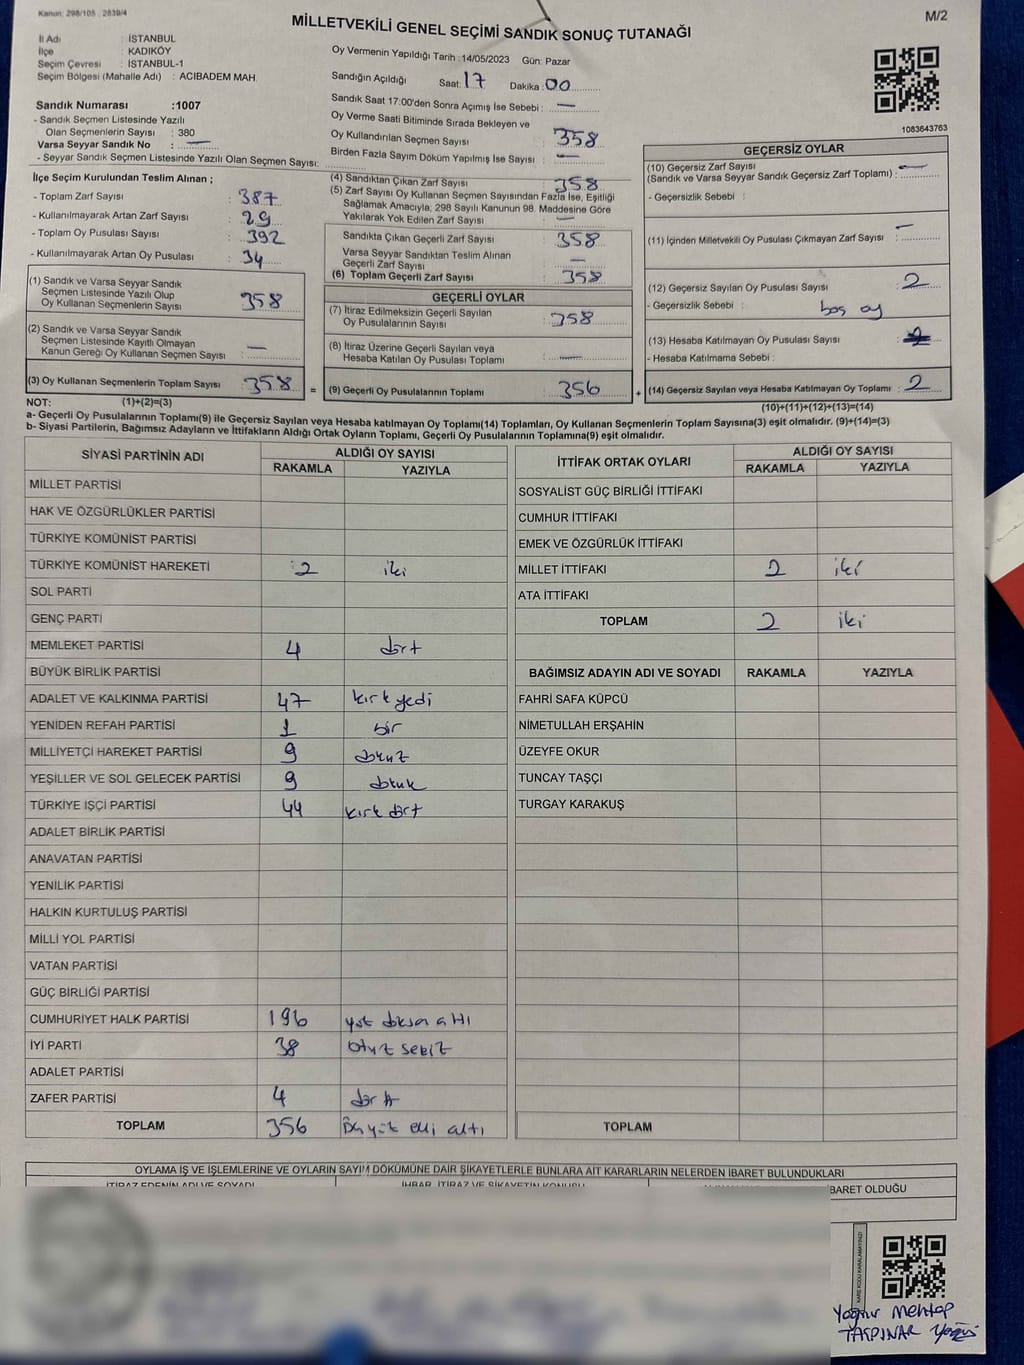 Kanun: 298/105 , 2839/4
MİLLETVEKİLİ GENEL SEÇİMİ SANDIK SONUÇ TUTANAĞI
M/2
İl Adı : İSTANBUL
İlçe : KADIKÖY
Seçim Çevresi : İSTANBUL-1
Seçim Bölgesi (Mahalle Adı) : ACIBADEM MAH.
Oy Vermenin Yapıldığı Tarih : 14/05/2023 Gün: Pazar
Sandığın Açıldığı Saat: 17 Dakika: 00
Sandık Saat 17:00'den Sonra Açımış İse Sebebi : —
Oy Verme Saati Bitiminde Sırada Bekleyen ve
Oy Kullandırılan Seçmen Sayısı : 358
Birden Fazla Sayım Döküm Yapılmış İse Sayısı : —
1083643763
Sandık Numarası : 1007
- Sandık Seçmen Listesinde Yazılı
Olan Seçmenlerin Sayısı : 380
Varsa Seyyar Sandık No : —
- Seyyar Sandık Seçmen Listesinde Yazılı Olan Seçmen Sayısı:
İlçe Seçim Kurulundan Teslim Alınan ;
- Toplam Zarf Sayısı : 387
- Kullanılmayarak Artan Zarf Sayısı : 29
- Toplam Oy Pusulası Sayısı : 392
- Kullanılmayarak Artan Oy Pusulası : 34
(1) Sandık ve Varsa Seyyar Sandık
Seçmen Listesinde Yazılı Olup
Oy Kullanan Seçmenlerin Sayısı : 358
(2) Sandık ve Varsa Seyyar Sandık
Seçmen Listesinde Kayıtlı Olmayan
Kanun Gereği Oy Kullanan Seçmen Sayısı : —
(3) Oy Kullanan Seçmenlerin Toplam Sayısı : 358 =
(4) Sandıktan Çıkan Zarf Sayısı : 358
(5) Zarf Sayısı Oy Kullanan Seçmen Sayısından Fazla İse, Eşitliği
Sağlamak Amacıyla; 298 Sayılı Kanunun 98. Maddesine Göre
Yakılarak Yok Edilen Zarf Sayısı : —
Sandıkta Çıkan Geçerli Zarf Sayısı : 358
Varsa Seyyar Sandıktan Teslim Alınan
Geçerli Zarf Sayısı : —
(6) Toplam Geçerli Zarf Sayısı : 358
GEÇERLİ OYLAR
(7) İtiraz Edilmeksizin Geçerli Sayılan
Oy Pusulalarının Sayısı : 358
(8) İtiraz Üzerine Geçerli Sayılan veya
Hesaba Katılan Oy Pusulası Toplamı : —
(9) Geçerli Oy Pusulalarının Toplamı : 356 +
GEÇERSİZ OYLAR
(10) Geçersiz Zarf Sayısı
(Sandık ve Varsa Seyyar Sandık Geçersiz Zarf Toplamı) : —
- Geçersizlik Sebebi :
(11) İçinden Milletvekili Oy Pusulası Çıkmayan Zarf Sayısı : —
(12) Geçersiz Sayılan Oy Pusulası Sayısı : 2
- Geçersizlik Sebebi : boş oy
(13) Hesaba Katılmayan Oy Pusulası Sayısı :
- Hesaba Katılmama Sebebi :
(14) Geçersiz Sayılan veya Hesaba Katılmayan Oy Toplamı : 2
NOT: (1)+(2)=(3)
(10)+(11)+(12)+(13)=(14)
a- Geçerli Oy Pusulalarının Toplamı(9) ile Geçersiz Sayılan veya Hesaba katılmayan Oy Toplamı(14) Toplamları, Oy Kullanan Seçmenlerin Toplam Sayısına(3) eşit olmalıdır. (9)+(14)=(3)
b- Siyasi Partilerin, Bağımsız Adayların ve İttifakların Aldığı Ortak Oyların Toplamı, Geçerli Oy Pusulalarının Toplamına(9) eşit olmalıdır.
SİYASİ PARTİNİN ADI
ALDIĞI OY SAYISI
RAKAMLA YAZIYLA
MİLLET PARTİSİ
HAK VE ÖZGÜRLÜKLER PARTİSİ
TÜRKİYE KOMÜNİST PARTİSİ
TÜRKİYE KOMÜNİST HAREKETİ 2 iki
SOL PARTİ
GENÇ PARTİ
MEMLEKET PARTİSİ 4 dört
BÜYÜK BİRLİK PARTİSİ
ADALET VE KALKINMA PARTİSİ 47 kırk yedi
YENİDEN REFAH PARTİSİ 1 bir
MİLLİYETÇİ HAREKET PARTİSİ 9 dokuz
YEŞİLLER VE SOL GELECEK PARTİSİ 9
TÜRKİYE İŞÇİ PARTİSİ 44 kırk dört
ADALET BİRLİK PARTİSİ
ANAVATAN PARTİSİ
YENİLİK PARTİSİ
HALKIN KURTULUŞ PARTİSİ
MİLLİ YOL PARTİSİ
VATAN PARTİSİ
GÜÇ BİRLİĞİ PARTİSİ
CUMHURİYET HALK PARTİSİ 196 yüz doksan altı
İYİ PARTİ 38 otuz sekiz
ADALET PARTİSİ
ZAFER PARTİSİ 4 dört
TOPLAM 356 üçyüz elli altı
İTTİFAK ORTAK OYLARI
ALDIĞI OY SAYISI
RAKAMLA YAZIYLA
SOSYALİST GÜÇ BİRLİĞİ İTTİFAKI
CUMHUR İTTİFAKI
EMEK VE ÖZGÜRLÜK İTTİFAKI
MİLLET İTTİFAKI 2 iki
ATA İTTİFAKI
TOPLAM 2 iki
BAĞIMSIZ ADAYIN ADI VE SOYADI RAKAMLA YAZIYLA
FAHRİ SAFA KÜPCÜ
NİMETULLAH ERŞAHİN
ÜZEYFE OKUR
TUNCAY TAŞÇI
TURGAY KARAKUŞ
TOPLAM
OYLAMA İŞ VE İŞLEMLERİNE VE OYLARIN SAYIM DÖKÜMÜNE DAİR ŞİKAYETLERLE BUNLARA AİT KARARLARIN NELERDEN İBARET BULUNDUKLARI
İTİRAZ EDENİN ADI VE SOYADI
İHBAR, İTİRAZ VE ŞİKAYETİN KONUSU
İBARET OLDUĞU
KARE KODU KARALAMAYINIZ!
Yağmur Mehtap
TAŞPINAR